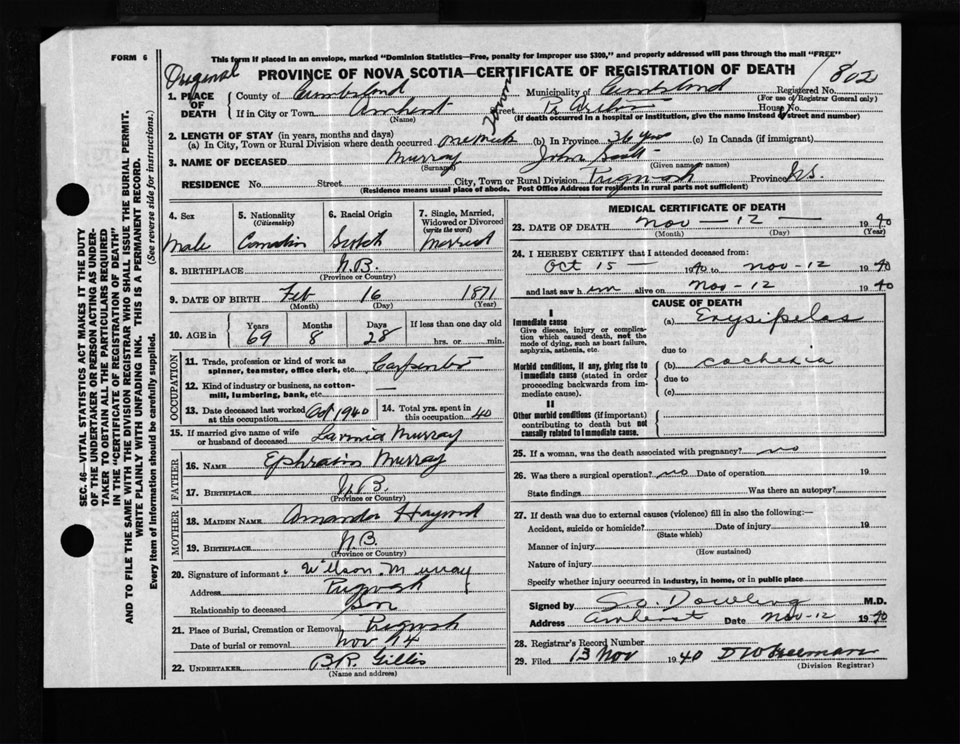 FORM 6
This form if placed in an envelope, marked "Dominion Statistics—Free, penalty for improper use $300," and properly addressed will pass through the mail "FREE"
Original
PROVINCE OF NOVA SCOTIA—CERTIFICATE OF REGISTRATION OF DEATH
1802
1. PLACE OF DEATH
County of Cumberland Municipality of Cumberland Registered No.
(For use of Registrar General only)
If in City or Town Amherst Street House No.
(If death occurred in a hospital or institution, give the name instead of street and number)
2. LENGTH OF STAY (in years, months and days)
(a) In City, Town or Rural Division where death occurred one week (b) In Province 36 years (c) In Canada (if immigrant)
3. NAME OF DECEASED Murray John Scott
(Surname) (Given name or names)
RESIDENCE No. Street City, Town or Rural Division Pugwash Province N.S.
(Residence means usual place of abode. Post Office Address for residents in rural parts not sufficient)
SEC. 46—VITAL STATISTICS ACT MAKES IT THE DUTY
OF THE UNDERTAKER OR PERSON ACTING AS UNDER-
TAKER TO OBTAIN ALL THE PARTICULARS REQUIRED
IN THE "CERTIFICATE OF REGISTRATION OF DEATH"
AND TO FILE THE SAME WITH THE DIVISION REGISTRAR WHO SHALL ISSUE THE BURIAL PERMIT.
WRITE PLAINLY WITH UNFADING INK. THIS IS A PERMANENT RECORD.
Every item of information should be carefully supplied. (See reverse side for instructions.)
4. Sex
Male
5. Nationality
(Citizenship)
Canadian
6. Racial Origin
Scotch
7. Single, Married,
Widowed or Divorced
(write the word)
Married
8. BIRTHPLACE N.B.
(Province or Country)
9. DATE OF BIRTH Feb 16 1871
(Month) (Day) (Year)
10. AGE in
Years Months Days If less than one day old
69 8 28 hrs. or min.
OCCUPATION
11. Trade, profession or kind of work as
spinner, teamster, office clerk, etc. Carpenter
12. Kind of industry or business, as cotton-
mill, lumbering, bank, etc. —
13. Date deceased last worked
at this occupation Oct 1940
14. Total yrs. spent in
this occupation 40
15. If married give name of wife
or husband of deceased Murray
FATHER
16. NAME Ephraim Murray
17. BIRTHPLACE N.B.
(Province or Country)
MOTHER
18. MAIDEN NAME Amanda
19. BIRTHPLACE N.B.
(Province or Country)
20. Signature of informant Wilson Murray
Address Pugwash
Relationship to deceased Son
21. Place of Burial, Cremation or Removal Pugwash
Date of burial or removal Nov 14
22. UNDERTAKER B.R. Gillis
(Name and address)
MEDICAL CERTIFICATE OF DEATH
23. DATE OF DEATH Nov — 12 — 1940
(Month) (Day) (Year)
24. I HEREBY CERTIFY that I attended deceased from:
Oct 15 1940 to Nov - 12 1940
and last saw him alive on Nov - 12 1940
CAUSE OF DEATH
I
Immediate cause
Give disease, injury or complica-
tion which caused death, not the
mode of dying, such as heart failure,
asphyxia, asthenia, etc.
(a) Erysipelas
due to
Morbid conditions, if any, giving rise to
immediate cause (stated in order
proceeding backwards from im-
mediate cause).
(b) cachexia
due to
(c)
II
Other morbid conditions (if important)
contributing to death but not
causally related to immediate cause.
25. If a woman, was the death associated with pregnancy? no
26. Was there a surgical operation? no Date of operation 19
State findings Was there an autopsy?
27. If death was due to external causes (violence) fill in also the following:—
Accident, suicide or homicide? Date of injury 19
(State which)
Manner of injury
(How sustained)
Nature of injury
Specify whether injury occurred in industry, in home, or in public place
Signed by Dowling M.D.
Address Amherst Date Nov-12 1940
28. Registrar's Record Number
29. Filed 13 Nov 1940
(Division Registrar)